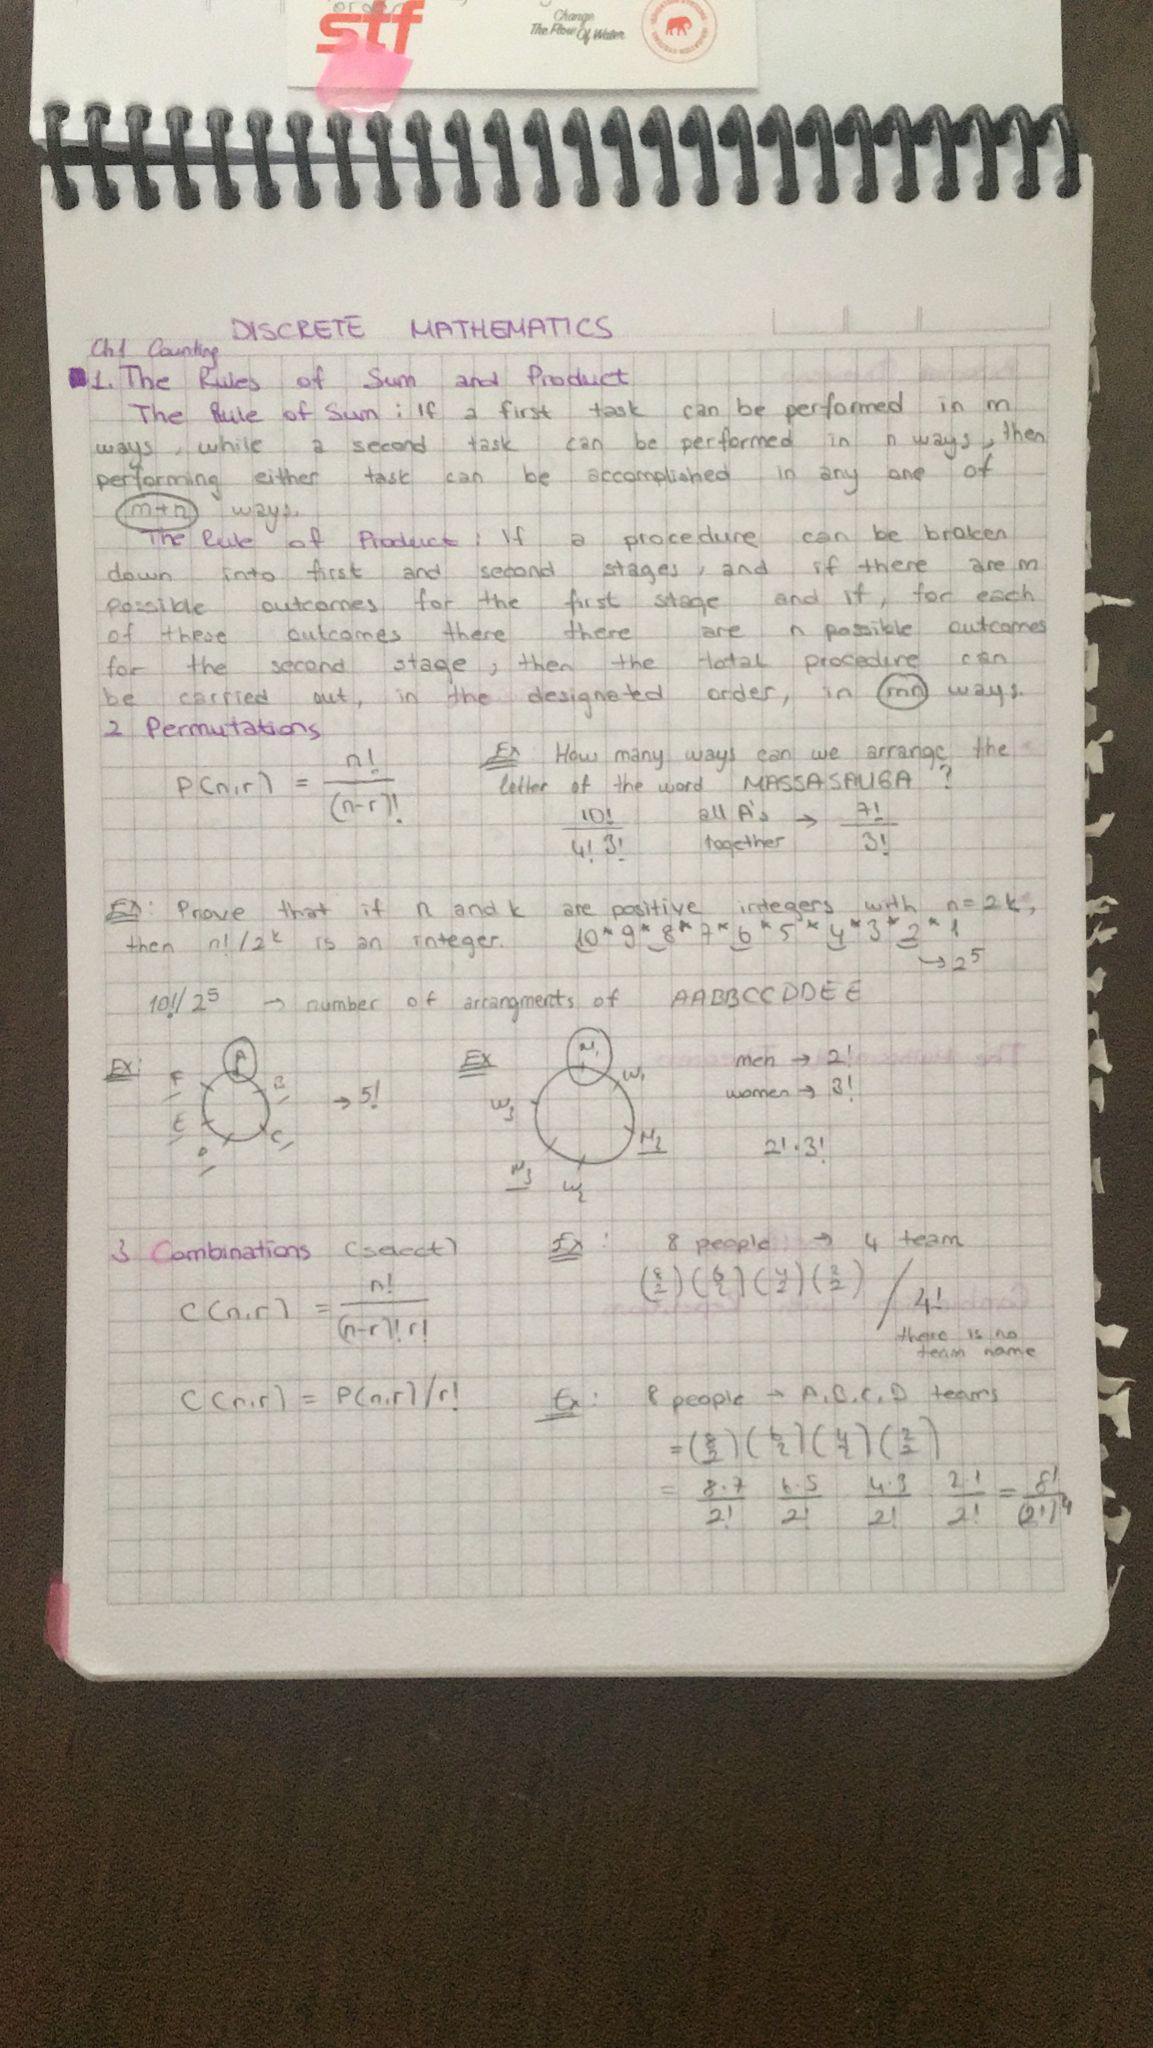 stf
Change
The Flow Of Water
DISCRETE MATHEMATICS
Ch1 Counting
1. The Rules of Sum and Product
The Rule of Sum : If a first task can be performed in m
ways, while a second task can be performed in n ways, then
performing either task can be accomplished in any one of
m+n ways.
The Rule of Product : If a procedure can be broken
down into first and second stages, and if there are m
possible outcomes for the first stage and if, for each
of these outcomes there there are n possible outcomes
for the second stage, then the total procedure can
be carried out, in the designated order, in mn ways.
2 Permutations
P(n,r) = n! / (n-r)!
Ex: How many ways can we arrange the
letter of the word MASSASAUGA ?
10! / 4! 3! all A's together → 7! / 3!
Ex: Prove that if n and k are positive integers with n=2k,
then n!/2^k is an integer. 10*9*8*7*6*5*4*3*2*1
→ 2^5
10!/2^5 → number of arrangments of AABBCCDDEE
Ex: A B C D E F → 5!
Ex M1 W1 M2 W2 M3 W3
men → 2!
women → 3!
2!.3!
3 Combinations (select)
C(n,r) = n! / (n-r)! r!
C(n,r) = P(n,r)/r!
Ex : 8 people → 4 team
(8 2) (6 2) (4 2) (2 2) / 4!
there is no
team name
Ex: 8 people → A,B,C,D teams
= (8 2) (6 2) (4 2) (2 2)
= 8.7/2! 6.5/2! 4.3/2! 2.1/2! = 8!/(2!)^4